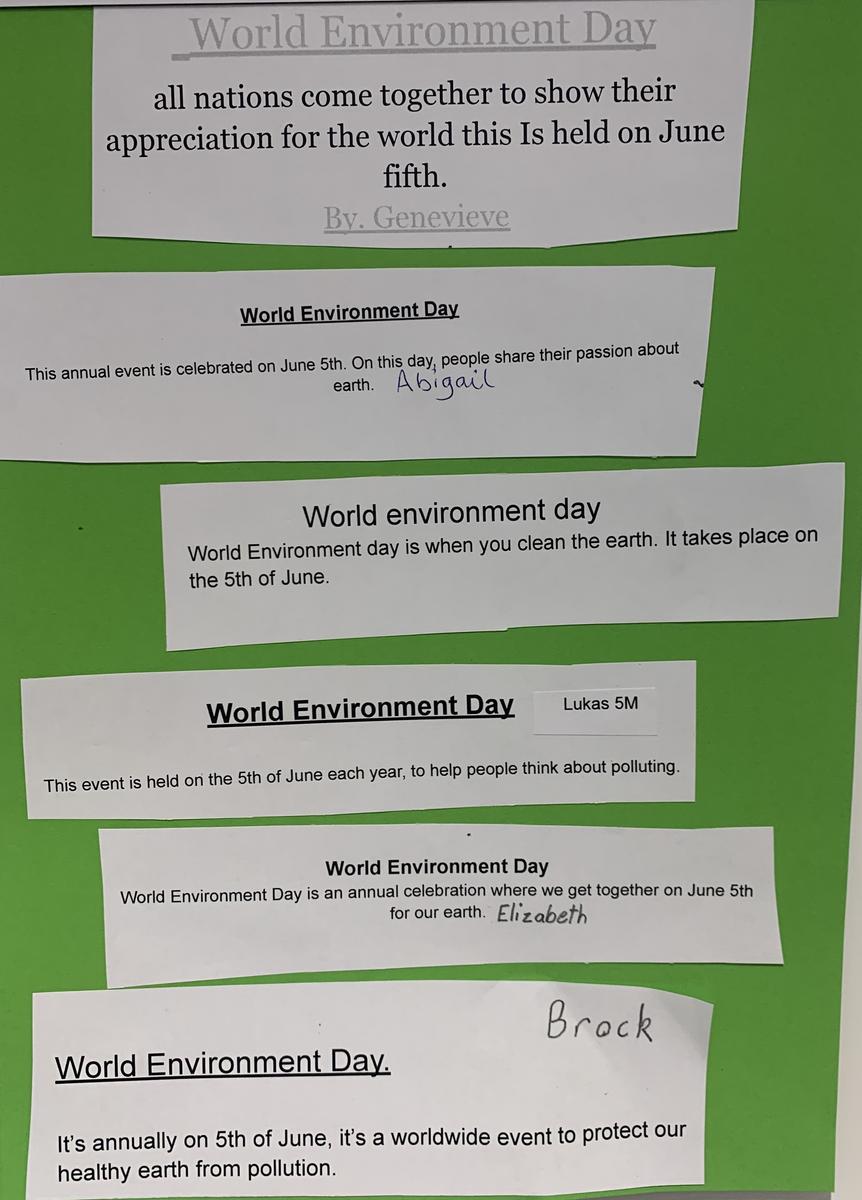 World Environment Day
all nations come together to show their
appreciation for the world this Is held on June
fifth.
By. Genevieve
World Environment Day
This annual event is celebrated on June 5th. On this day, people share their passion about
earth. Abigail
World environment day
World Environment day is when you clean the earth. It takes place on
the 5th of June.
World Environment Day Lukas 5M
This event is held on the 5th of June each year, to help people think about polluting.
World Environment Day
World Environment Day is an annual celebration where we get together on June 5th
for our earth. Elizabeth
Brock
World Environment Day.
It's annually on 5th of June, it's a worldwide event to protect our
healthy earth from pollution.